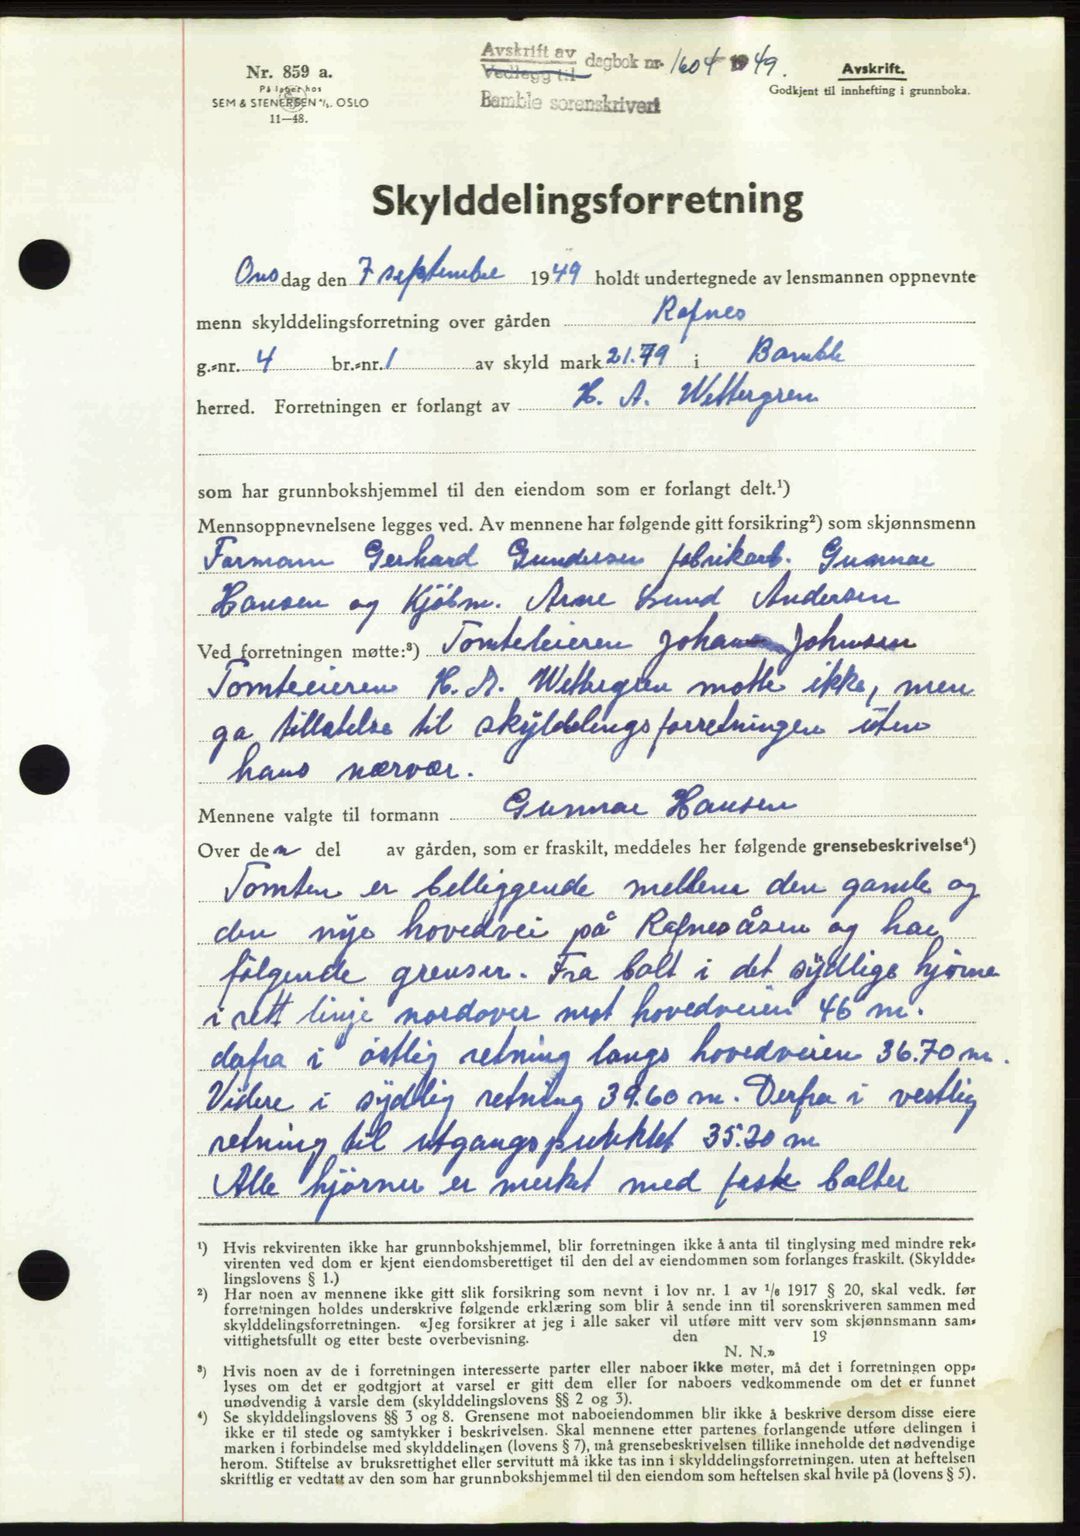 Nr. 859 a.
På lager hos
SEM & STENERSEN A/S. OSLO
11—48.
Avskrift av
Vedlegg til
dagbok nr. 1604 1949.
Bamble sorenskriveri
Avskrift.
Godkjent til innhefting i grunnboka.
Skylddelingsforretning
Onsdag den 7 september 1949 holdt undertegnede av lensmannen oppnevnte
menn skylddelingsforretning over gården Rafnes
g.-nr. 4 br.-nr. 1 av skyld mark 21.79 i Bamble
herred. Forretningen er forlangt av H. A. Wettergren
som har grunnbokshjemmel til den eiendom som er forlangt delt.¹)
Mennsoppnevnelsene legges ved. Av mennene har følgende gitt forsikring²) som skjønnsmenn
Formann Gerhard Gundersen fabrikarb. Gunnar
Hansen og Kjöbm. Arne Lund Andersen
Ved forretningen møtte:³) Tomteeieren Johan Johnsen
Tomteeieren H. A. Wettergren møtte ikke, men
ga tillatelse til skylddelingsforretningen uten
hans nærvær.
Mennene valgte til formann Gunnar Hansen
Over den del av gården, som er fraskilt, meddeles her følgende grensebeskrivelse⁴)
Tomten er beliggende mellem den gamle og
den nye hovedvei på Rafnesåsen og har
følgende grenser. Fra bolt i det sydlige hjørne
i rett linje nordover mot hovedveien 46 m.
derfra i östlig retning langs hovedveien 36.70 m.
Videre i sydlig retning 39.60 m. Derfra i vestlig
retning til utgangspunktet 35.20 m
Alle hjörner er merket med faste bolter
¹) Hvis rekvirenten ikke har grunnbokshjemmel, blir forretningen ikke å anta til tinglysing med mindre rek-
virenten ved dom er kjent eiendomsberettiget til den del av eiendommen som forlanges fraskilt. (Skyldde-
lingslovens § 1.)
²) Har noen av mennene ikke gitt slik forsikring som nevnt i lov nr. 1 av 1/6 1917 § 20, skal vedk. før
forretningen holdes underskrive følgende erklæring som blir å sende inn til sorenskriveren sammen med
skylddelingsforretningen. «Jeg forsikrer at jeg i alle saker vil utføre mitt verv som skjønnsmann sam-
vittighetsfullt og etter beste overbevisning. den 19
N. N.»
³) Hvis noen av de i forretningen interesserte parter eller naboer ikke møter, må det i forretningen opp-
lyses om det er godtgjort at varsel er gitt dem eller for naboers vedkommende om det er funnet
unødvendig å varsle dem (skylddelingslovens §§ 2 og 3).
⁴) Se skylddelingslovens §§ 3 og 8. Grensene mot naboeiendommen blir ikke å beskrive dersom disse eiere
ikke er til stede og samtykker i beskrivelsen. Skal mennene etter partenes forlangende utføre delingen i
marken i forbindelse med skylddelingen (lovens § 7), må grensebeskrivelsen tillike inneholde det nødvendige
herom. Stiftelse av bruksrettighet eller servitutt må ikke tas inn i skylddelingsforretningen, uten at heftelsen
skriftlig er vedtatt av den som har grunnbokshjemmel til den eiendom som heftelsen skal hvile på (lovens § 5).